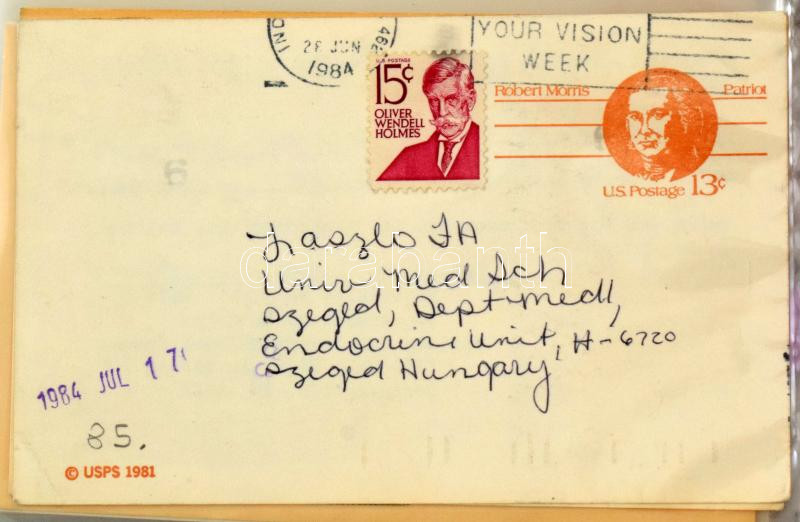 28 JUN
1984
YOUR VISION
WEEK
U.S. POSTAGE
15¢
OLIVER
WENDELL
HOLMES
Robert Morris Patriot
U.S. Postage 13¢
Laszlo FA
Univ Med Sch
Szeged, Dept Medl,
Endocrine Unit, H-6720
Szeged Hungary
darabanth
1984 JUL 17
85.
© USPS 1981